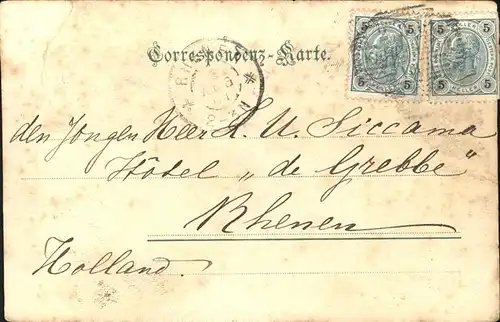 Correspondenz-Karte.
5 5
5 5
den Jongen Heer L. U. Siccama
Hôtel „de Grebbe"
Rhenen
Holland.